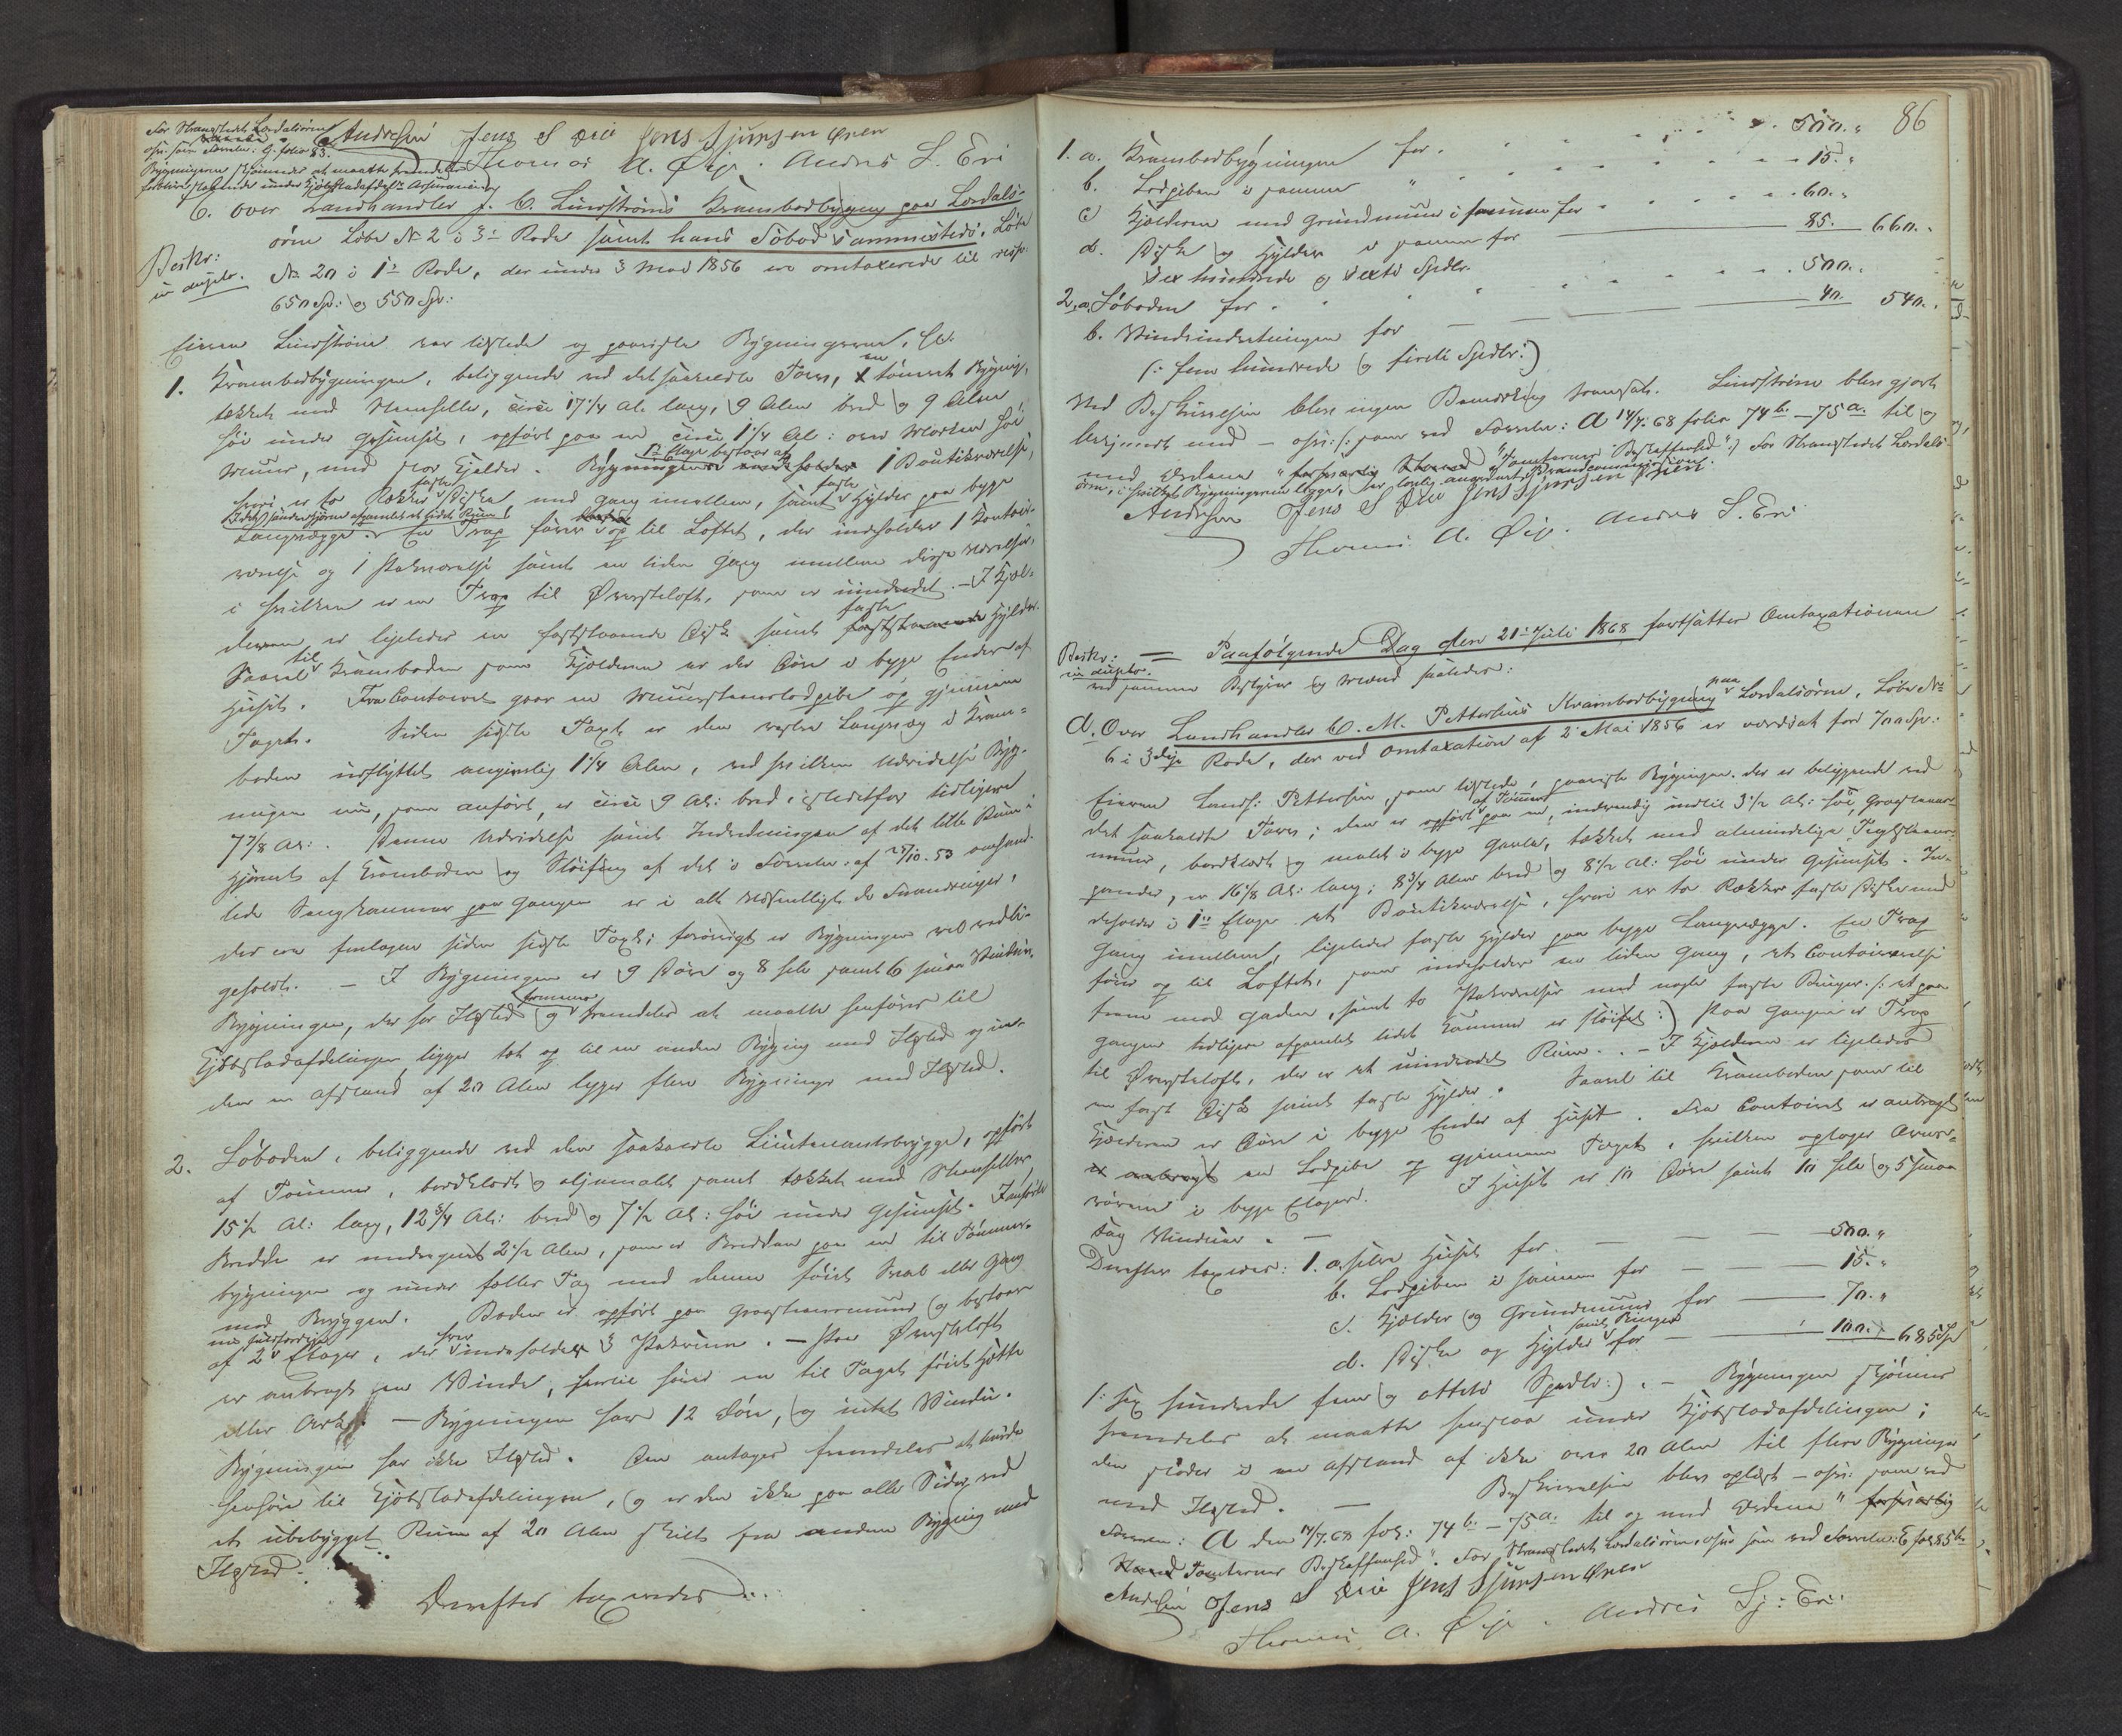 For Strangstedet Lærdalsøren
ofr. som Forretn: G. folio 83.
Bygningerne skjønnes at maatte fremdeles
forblive staaende under Kjøbstadafdel's Assurancen
Andresen Jens S Øvri Jens Sjursen Øren
Thomas A. Øie. Andres L. Eri
C. over Landhandler J. C. Lindstrøms Krambodbygning paa Lærdals-
øren Løbe No 2 i 3die Rode samt hans Søbod sammesteds, Løbe
Beskr:
in duplo.
No 20 i 1ste Rode, der under 3 Mai 1856 ere omtaxerede til resp.
650 Sp: og 550 Sp:
Eieren Lindstrøm var tilstede og paaviste Bygningerne.
1. Krambodbygningen, beliggende ved det saakaldte Torv, en tømret Bygning,
tækket med Steenheller, circa 17 1/4 Al. lang, 9 Alen bred og 9 Alen
høi under Gesimset, opført paa en circa 1 1/4 Al: over Marken høi
Muur, med stor Kjelder. Bygningens 1ste Etage bestaar af 1 Boutikværelse,
hvori er to Rækker faste Diske med Gang imellem, samt faste Hylder paa begge
I det søndre Hjørne afpanelet et lidet Rum
Langvægge. En Trap fører op til Loftet, der indeholder 1 Contoir-
værelse og 1 Pakværelse samt en liden Gang imellem disse Værelser,
i hvilken er en Trap til Øversteloft, som er uindredet. - I Kjæl-
deren er ligeledes en faststaaende Disk samt faste Hylder.
Saavel til Kramboden som Kjælderen er der Døre i begge Ender af
Huset. Fra Contoiret gaar en Muursteenslodpibe op gjennem
Taget. Siden sidste Taxt er den vestre Langvæg i Kram-
boden udflyttet omgivelig 1 1/4 Alen, ved hvilken Udvidelse Byg-
ningen nu, som anført, er circa 9 Al: bred, istedetfor tidligere
7 7/8 Al:. Denne Udvidelse samt Indredningen af det lille Rum i
Hjørnet af Kramboden og Sløifing af det i Forretn: af 25/10-53 omhand-
lede Sengkammer paa Gangen er i alt væsentligt de Forandringer,
der ere foretagne siden sidste Taxt; forøvrigt er Bygningen vel vedli-
geholdt. - I Bygningen er 9 Døre og 8 hele samt 6 smaa Vinduer.
Bygningen, der har Ildsted og kommer fremdeles at maatte henføres til
Kjøbstadafdelingen ligger tæt op til en anden Bygning med Ildsted og in-
den en Afstand af 20 Alen ligger flere Bygninger med Ildsted.
2. Søboden, beliggende ved den saakaldte Lieutenantsbrygge, opført
af Tømmer, bordklædt og oljemalt samt tækket med Steenheller
15 1/2 Al: lang, 12 3/4 Al: bred og 7 1/2 Al: høi under Gesimset. I anførte
Bredde er medregnet 2 1/2 Alen, som er Bredden paa en til Tømmer-
bygningen og under fælles Tag med denne føiet Sval eller Gang
mod Bryggen. Boden er opført paa Graasteensmuur og bestaar
af 2 Etager, der hver indeholder 3 Pakrum. - Paa Øversteloft
er anbragt en Vinde, hvortil hører en til Taget føiet Hætte
eller Ark. - Bygningen har 12 Døre, og intet Vindu.
Bygningen har ikke Ildsted. Den antages fremdeles at burde
henføres til Kjøbstadafdelingen, og er den ikke paa alle Sider ved
et ubebygget Rum af 20 Alen skilt fra anden Bygning med
Ildsted.
Derefter taxeredes:
86
1. a. Krambodbygningen for . . . 500. "
b. Lodpiben i samme " . . . 15. "
c Kjælderen med Grundmuur i samme for . . . 60. "
d. Diske og Hylder i samme for 85. 660. "
Sex hundrede og sexti Spdlr.
2. a. Søboden for . . . 500. "
b. Vindeindretningen for 40. 540. "
(: fem hundrede og fireti Spdlr:)
Ved Beskrivelsen blev ingen Bemærkning fremsat. Lindstrøm blev gjort
bekjendt med - ofr: som ved Forretn: A 14/7.68 folio 74 b. - 75 a. til og
med Ordene "Tomternes Beskaffenhed":) For Strangstedet Lærdals-
øren, i hvilket Bygningerne ligge, er lovlig anordnet Brandcommission.
Andresen Jens S Øvri Jens Sjursen Øren
Thomas A. Øie. Andres L. Eri
Beskr:
in duplo.
= Paafølgende Dag den 21de Juli 1868 fortsattes Omtaxationen
ved samme Bestyrer og Mænd saaledes:
d. Over Landhandler C. M. Pettersens Krambodbygning paa Lærdalsøren, Løbe No
6 i 3die Rode, der ved Omtaxation af 2 Mai 1856 er værdsat for 700 Sp:
Eieren Landh: Pettersen, som tilstede, paaviste Bygningen. der er beliggende ved
det saakaldte Torv; den er opført af Tømmer paa en, indvendig indtil 3 1/2 Al: høi, Graasteens-
muur, bordklædt og malet i begge Gavle, tækket med almindelige Teglsteens-
pander, er 16 1/8 Al: lang; 8 3/4 Alen bred og 8 1/2 Al: høi under Gesimset. In-
deholder i 1ste Etage et Boutikværelse, hvori er to Rækker faste Diske med
Gang imellem, ligeledes faste Hylder paa begge Langvægge. En Trap
fører op til Loftet, som indeholder en liden Gang, et Contoirværelse
frem mod Gaden, samt to Pakværelser med nogle faste Binger. (: et paa
Gangen tidligere afpanelet lidet Kammer er sløifet:) Paa Gangen er Trap
til Øversteloft, der er et uindredet Rum. - I Kjælderen er ligeledes
en fast Disk samt faste Hylder. Saavel til Kramboden som til
Kjælderen er Døre i begge Ender af Huset. Fra Contoiret er anbragt
en Lodpibe op gjennem Taget, hvilken optager Ovns-
rørene i begge Etager. I Huset er 10 Døre samt 10 hele og 5 smaa
Fag Vinduer.
Derefter taxeredes: 1. a. selve Huset for 500. "
b. Lodpiben i samme for 15. "
c. Kjælder og Grundmuur for 70. "
d. Diske og Hylder samt Binger for 100. " 685 Sp
(: sex hundrede fem og otteti Spdlr:). - Bygningen skjønnes
fremdeles at maatte henstaa under Kjøbstadafdelingen;
den støder i en Afstand af ikke over 20 Alen til flere Bygninger
med Ildsted. - Beskrivelsen blev oplæst - ofr: som ved
Forretn: A den 14/7.68 fol: 74 b. - 75 a. til og med Ordene "
Tomternes Beskaffenhed". For Strangstedet Lærdalsøren, ofr som ved Forretn: C fol 85 b
Andresen Jens S Øvri Jens Sjursen Øren
Thomas A. Øie. Andres Sj: Eri